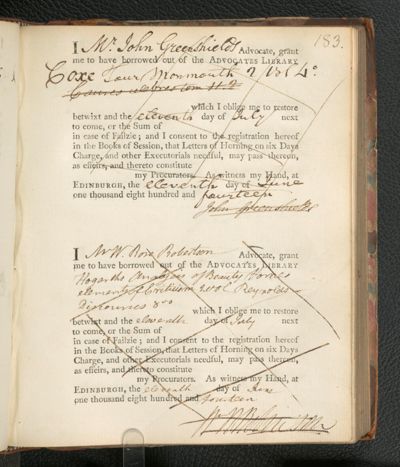 183.
I Mr. John Greenshields Advocate, grant
me to have borrowed out of the ADVOCATES LIBRARY
Coxe Tour Monmouth 2 vols 4o.
which I oblige me to restore
betwixt and the eleventh day of July next
to come, or the Sum of
in case of Failzie; and I consent to the registration hereof
in the Books of Session, that Letters of Horning on six Days
Charge, and other Executorials needful, may pass thereon,
as effeirs, and thereto constitute
my Procurators. As witness my Hand, at
EDINBURGH, the eleventh day of June
one thousand eight hundred and fourteen
John Greenshields
I Mr W. Rose Robertson Advocate, grant
me to have borrowed out of the ADVOCATES LIBRARY
Hogarths Analysis of Beauty Kames
elements of Criticism 2 vol Reynolds
Discourses 8vo
which I oblige me to restore
betwixt and the eleventh day of July next
to come, or the Sum of
in case of Failzie; and I consent to the registration hereof
in the Books of Session, that Letters of Horning on six Days
Charge, and other Executorials needful, may pass thereon,
as effeirs, and thereto constitute
my Procurators. As witness my Hand, at
EDINBURGH, the eleventh day of June
one thousand eight hundred and fourteen